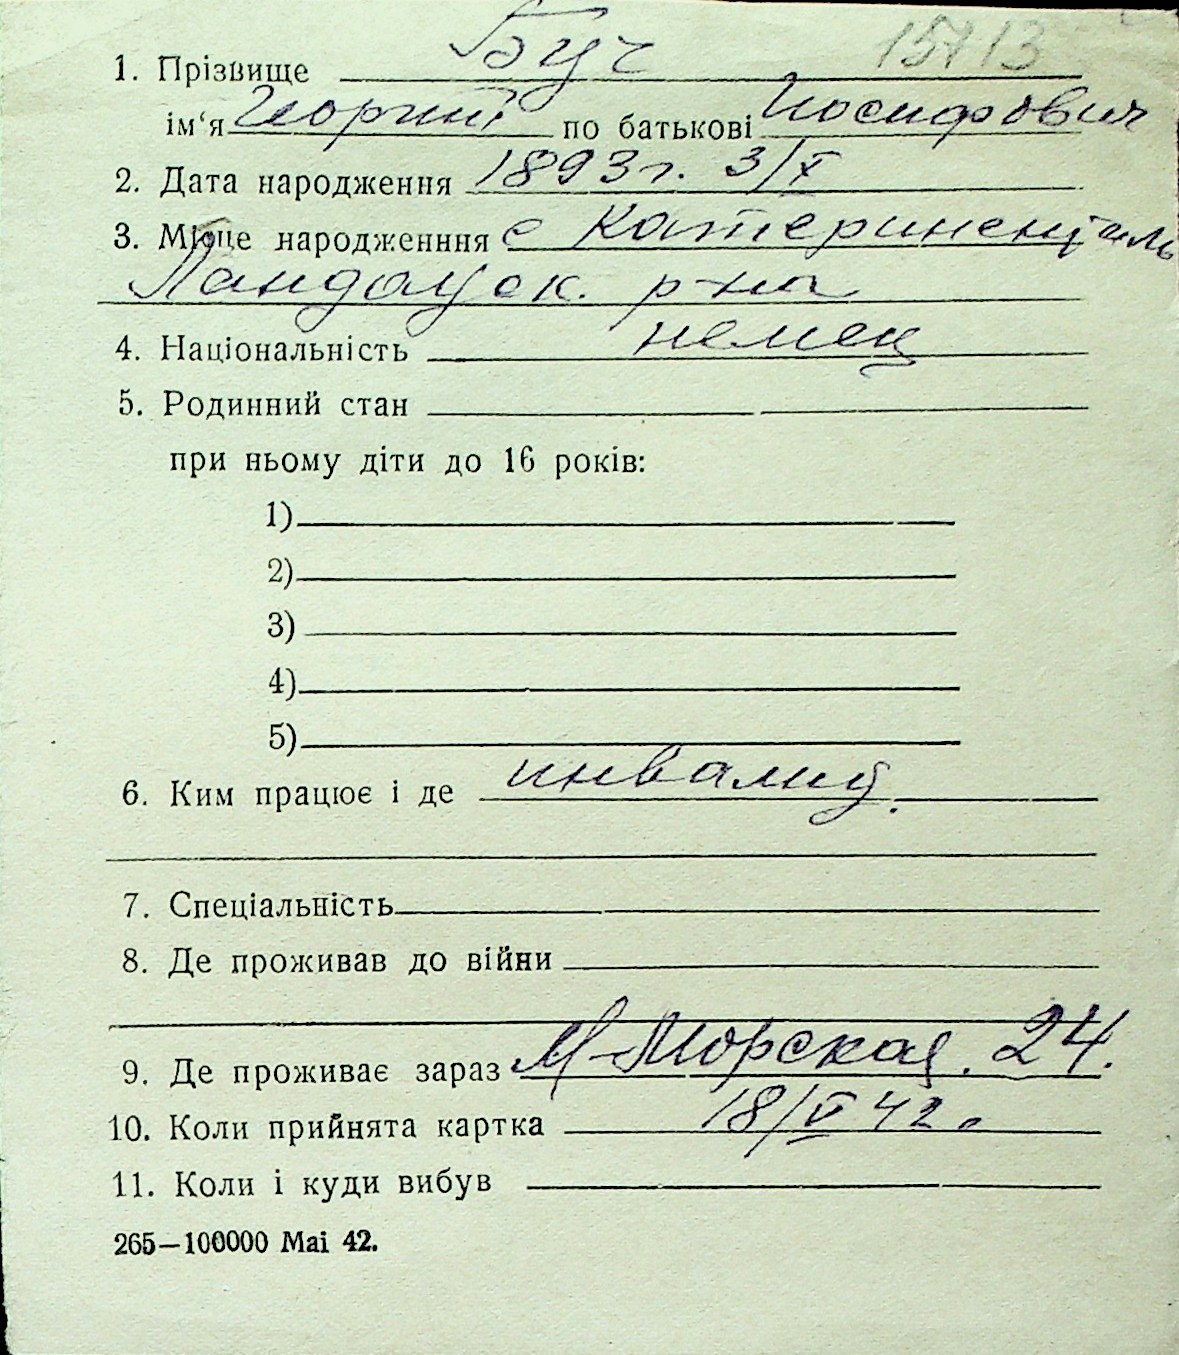 15713
1. Прізвище Буч
ім‘я Георгий по батькові Иосифович
2. Дата народження 1893г. 3/X
3. Місце народженння с Катериненталь
Ландауск. р-на
4. Національність немец
5. Родинний стан
при ньому діти до 16 років:
1)
2)
3)
4)
5)
6. Ким працює і де инвалид.
7. Спеціальність
8. Де проживав до війни
9. Де проживає зараз М-Морская. 24.
10. Коли прийнята картка 18/V 42.
11. Коли і куди вибув
265—100000 Mai 42.